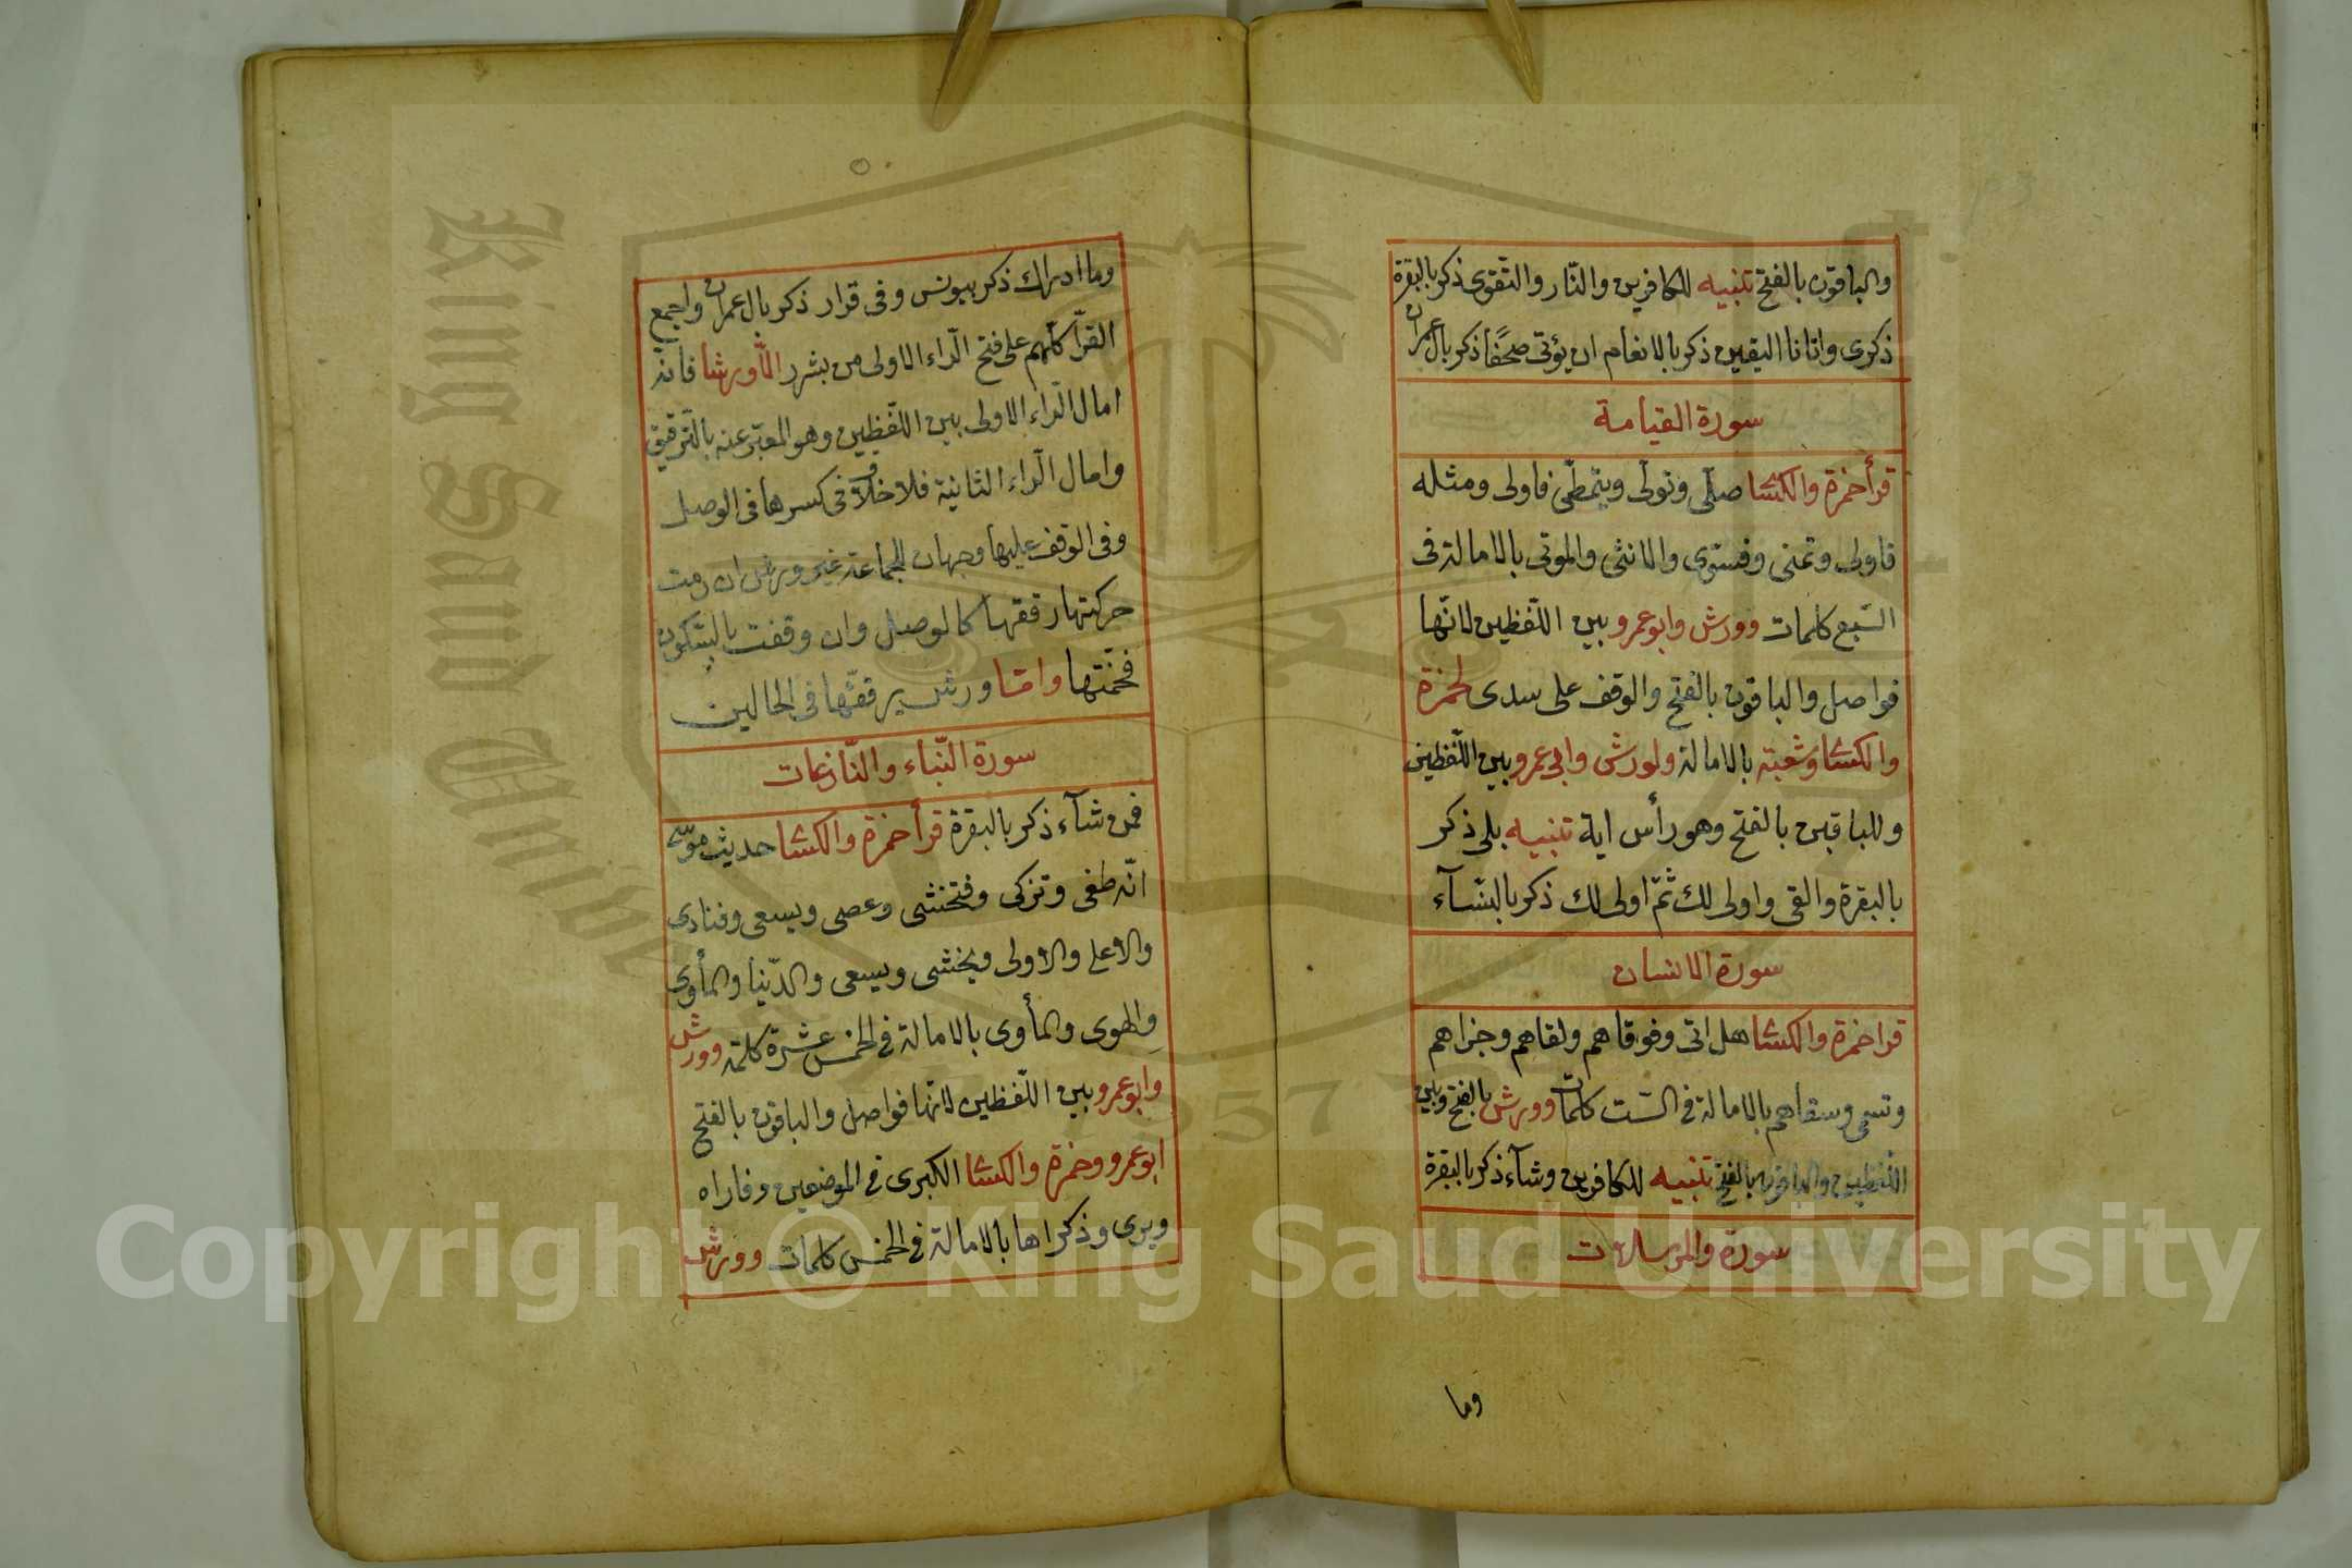 والباقون بالفتح تنبيه للكافرين والنّار والتّقوى ذكر بالبقرة
ذكرى واتانا اليقين ذكر بالانعام ان يؤتى صحفًا ذكر بال عمران
سورة القيامة
قرأ حمزة والكسّا صلّى وتولّى ويتمطّى فاولى ومثله
فاولى وتمنى وفسوى والانثى والموتى بالامالة فى
السّبع كلمات وورش وابو عمرو بين اللّفظين لانّها
فواصل والباقون بالفتح والوقف على سدى لحمزة
والكسّا وشعبة بالامالة ولورش وابى عمرو بين اللّفظين
وللباقين بالفتح وهو رأس اية تنبيه بلى ذكر
بالبقرة والقى واولى لك ثمّ اولى لك ذكر بالنّسآء
سورة الانسان
قرا حمزة والكسّا هل اتى وفوقاهم ولقاهم وجزاهم
وتسمى وسقاهم بالامالة فى السّت كلمات وورش بالفتح وبين
اللّفظين والباقون بالفتح تنبيه للكافرين وشآء ذكر بالبقرة
سورة والمرسلات
وما
وما ادراك ذكر بيونس وفى قرار ذكر بال عمران واجمع
القرّا كلّهم على فتح الرّاء الاولى من بشرر الّا ورشا فانه
امال الرّاء الاولى بين اللّفظين وهو المعبّر عنه بالتّرقيق
وامال الرّاء الثانية فلا خلاف فى كسرها فى الوصل
وفى الوقف عليها وجهان للجماعة غير ورش ان رمت
حركتها رققها كالوصل وان وقفت بالسّكون
فخّمتها وامّا ورش يرققّها فى الحالين
سورة النّباء والنّازعات
فمن شآء ذكر بالبقرة قرأ حمزة والكسّا حديث موسى
انّه طغى وتزكى وفتخشى وعصى ويسعى وفنادى
والاعلى والاولى ويخشى ويسعى والدّنيا والمأوى
والهوى والمأوى بالامالة فى الخمس عشرة كلمة وورش
وابو عمرو بين اللّفظين لانّها فواصل والباقون بالفتح
ابو عمرو وحمزة والكسّا الكبرى فى الموضعين وفاراه
ويرى وذكراها بالامالة فى الخمس كلمات وورش
King Saud Unive
1957
Copyright © King Saud University